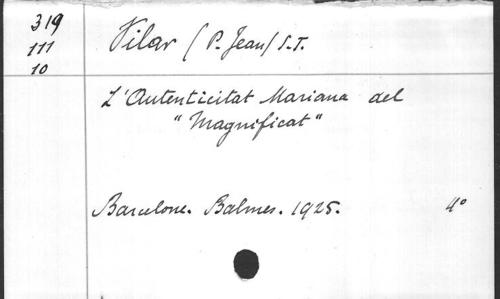 319
111
10
Vilar (P. Jean) S.T.
L'Autenticitat Mariana del
"Magnificat"
Barcelone. Balmes. 1925. 4°